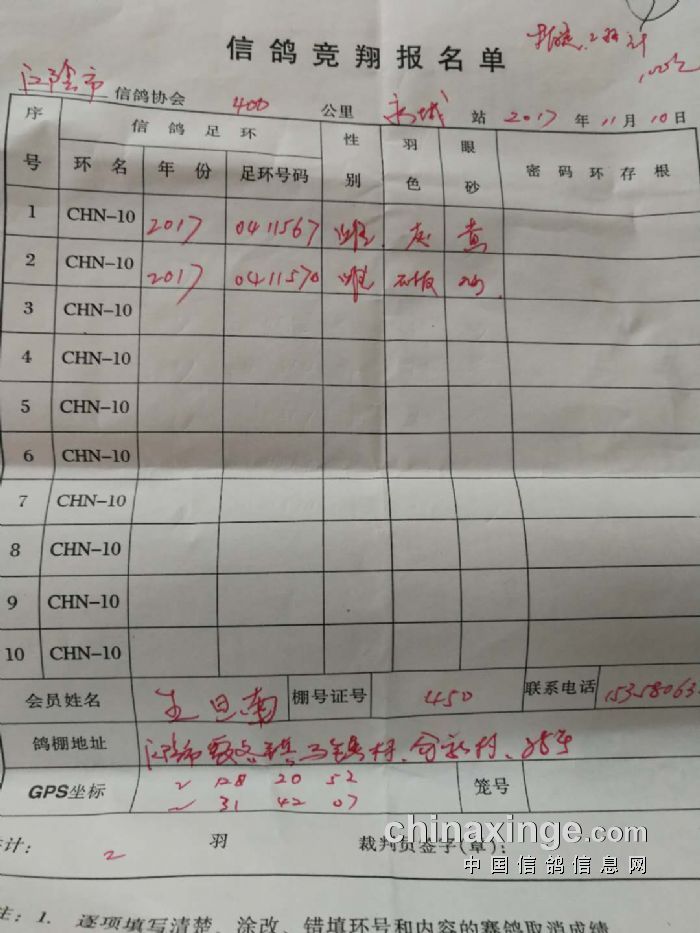 信鸽竞翔报名单
江阴市 信鸽协会 400 公里 站 2017 年 11 月 10 日
序号 信鸽足环 性别 羽色 眼砂 密码环存根
环名 年份 足环号码
1 CHN-10 2017 0411567 雌 灰 黄
2 CHN-10 2017 0411570 雌
3 CHN-10
4 CHN-10
5 CHN-10
6 CHN-10
7 CHN-10
8 CHN-10
9 CHN-10
10 CHN-10
会员姓名 棚号证号 450 联系电话 15358063
鸽棚地址 江阴市
GPS坐标 128 20 52 笼号
31 42 07
计: 2 羽 裁判员签子(章):
chinaxinge.com
中国信鸽信息网
注: 1. 逐项填写清楚、涂改、错填环号和内容的赛鸽取消成绩